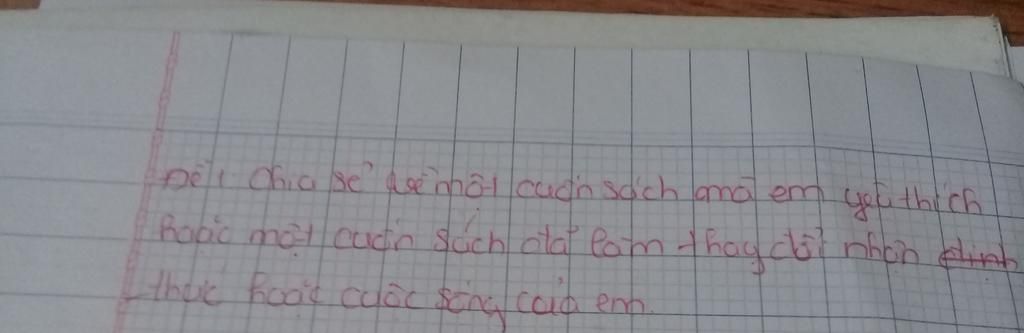 Đề 1 chia sẻ về một cuốn sách mà em yêu thích
hoặc một cuốn sách đã làm thay đổi nhận
thức hoặc cuộc sống của em.